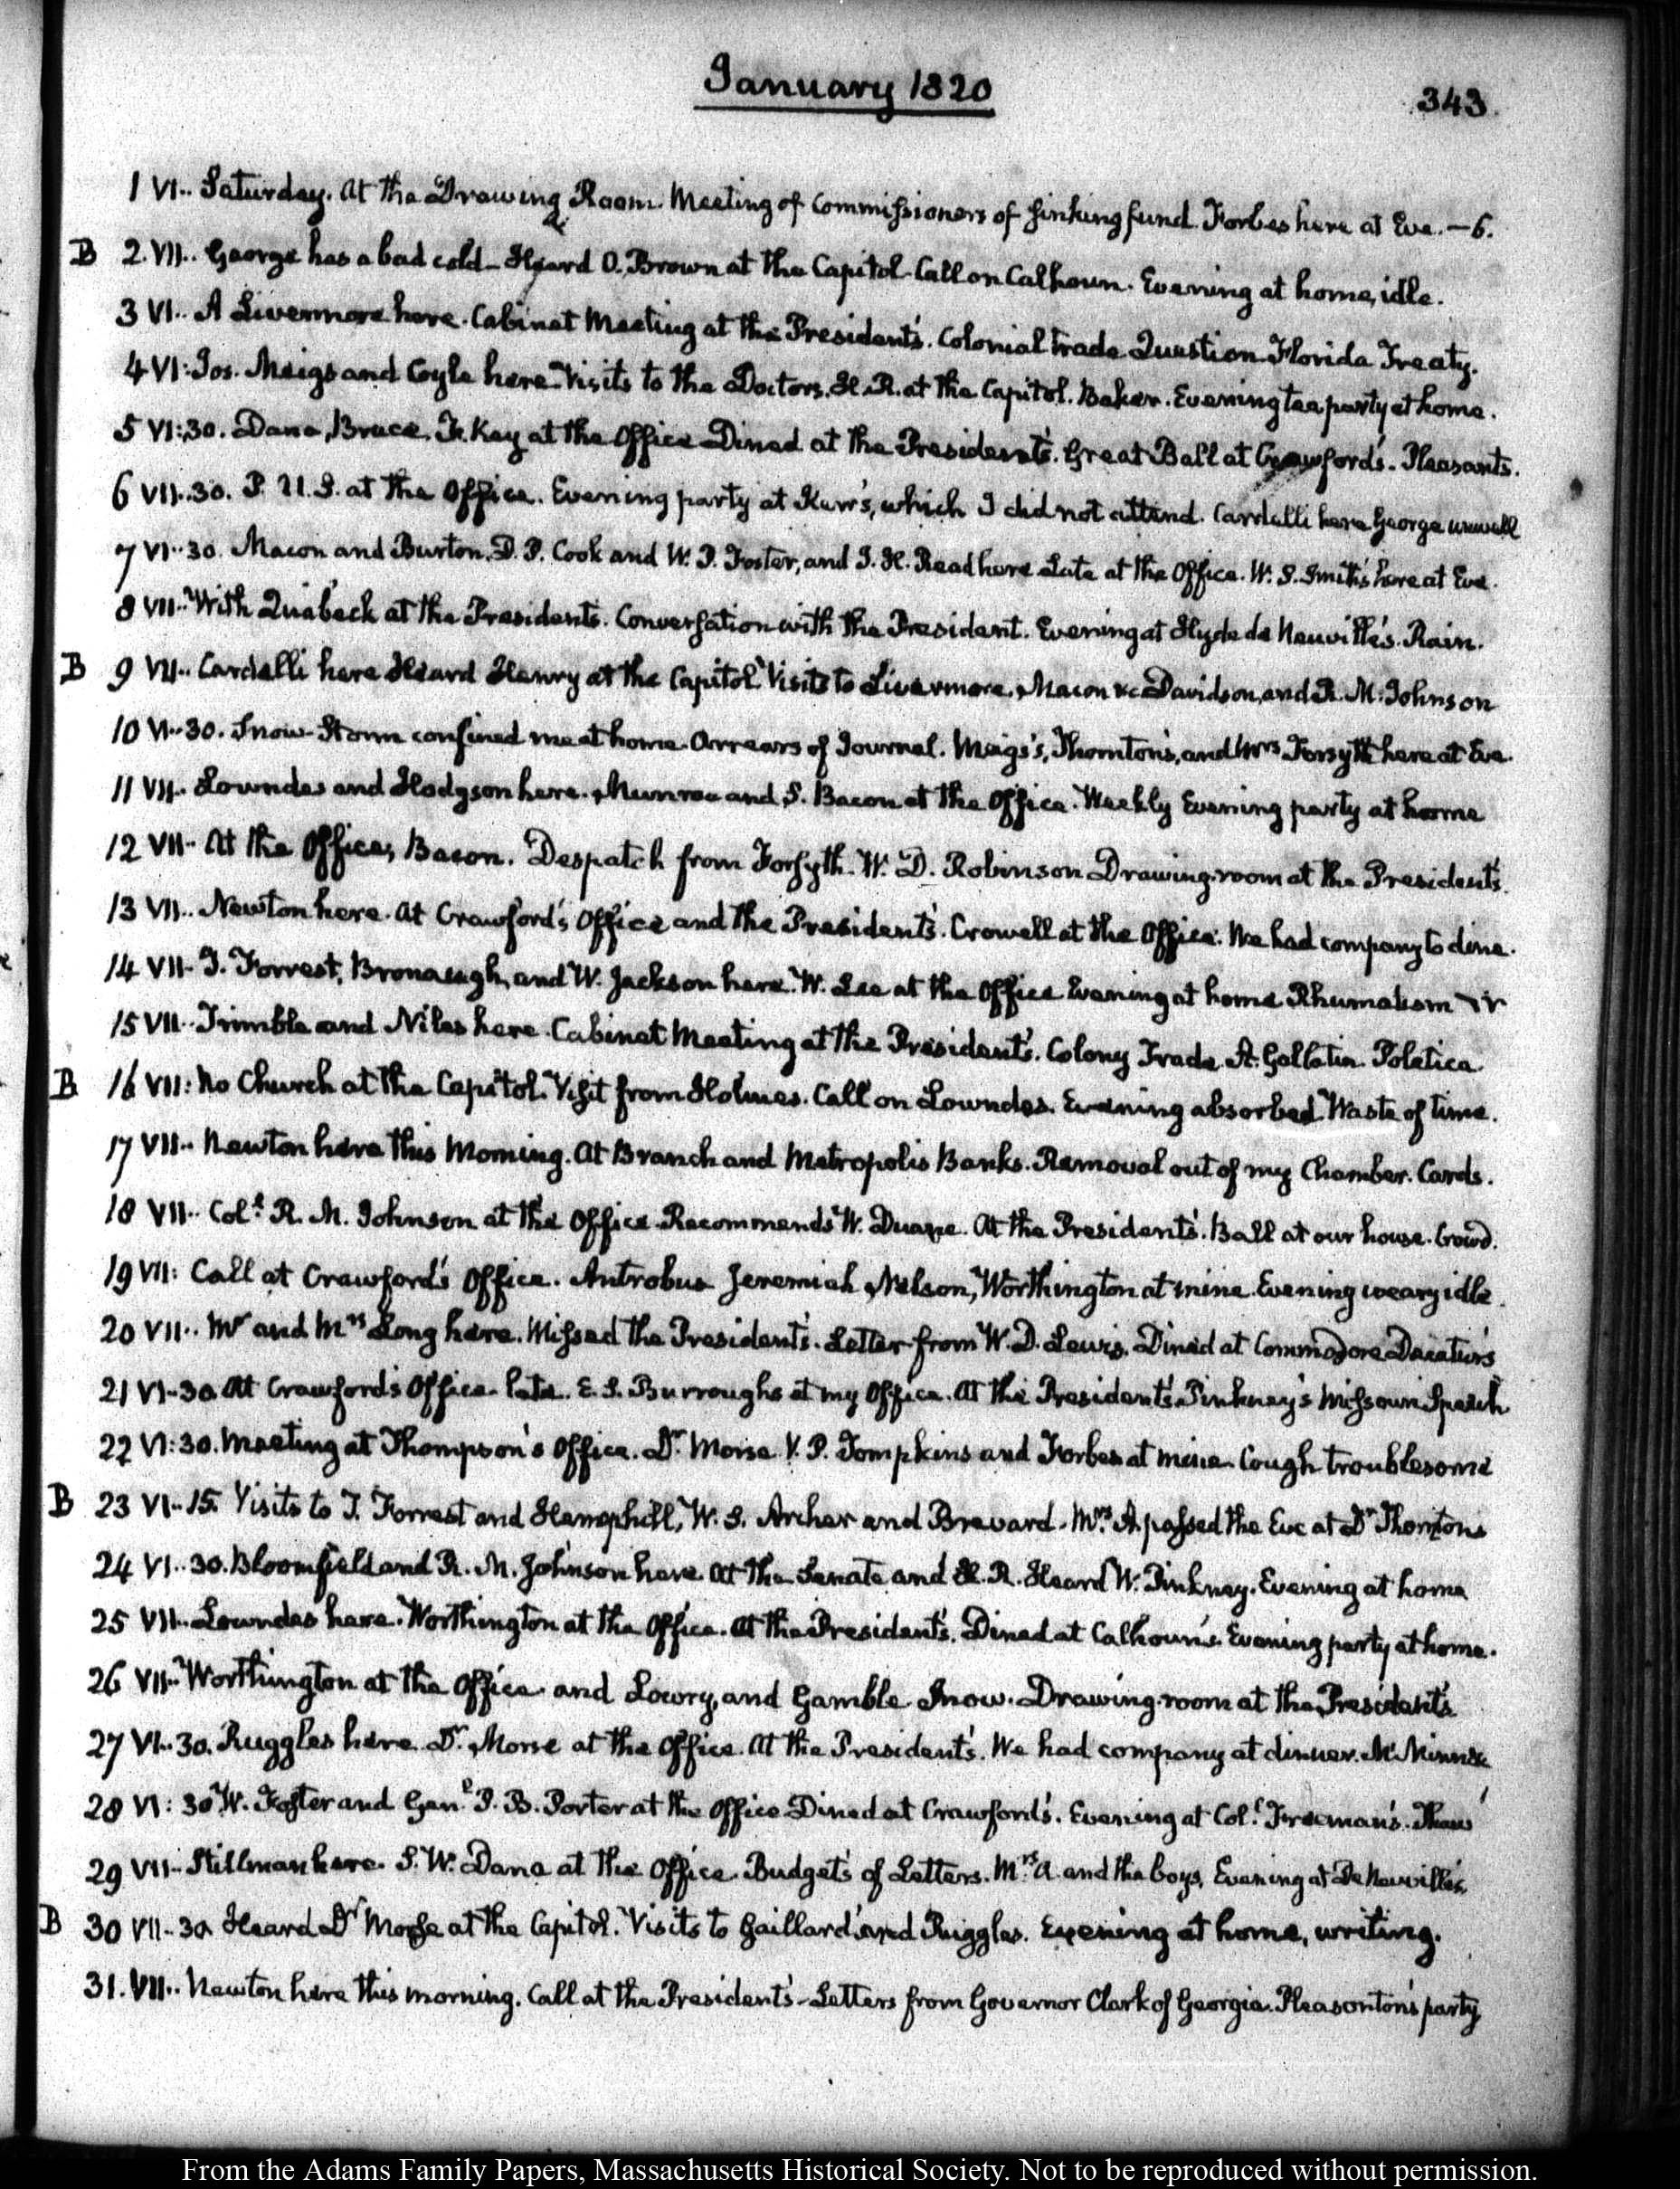 January 1820
343.
1 VI.. Saturday. At the Drawing Room. Meeting of Commissioners of sinking fund. Forbes here at Eve. —6.
B 2. VII.. George has a bad cold - Heard O. Brown at the Capitol. Call on Calhoun. Evening at home, idle.
3 VI.. A Livermore here. Cabinet Meeting at the President's. Colonial trade Question. Florida Treaty.
4 VI: Jos. Meigs and Coyle here. Visits to the Doctors. H. R. at the Capitol. Baker. Evening tea party at home.
5 VI:30. Dana, Bruce. F. Key at the Office Dined at the President's. Great Ball at Crawford's. Pleasants.
6 VII.30. P. U. S. at the Office. Evening party at Kerr's, which I did not attend. Cardelli here George unwell
7 VI..30. Macon and Burton. D. P. Cook and W. P. Foster, and J. H. Read here Late at the Office. W. S. Smith's here at Eve.
8 VII.. With Quabeck at the President's. Conversation with the President. Evening at Hyde de Neuville's. Rain.
B 9 VII.. Cardelli here Heard Henry at the Capitol. Visits to Livermore, Macon &c Davidson, and R. M. Johnson
10 VI..30. Snow-Storm confined me at home. Arrears of Journal. Meigs's, Thornton's, and Mrs Forsyth here at Eve.
11 VII. Lowndes and Hodgson here. Munroe and S. Bacon at the Office. Weekly Evening party at home
12 VII. At the Office, Bacon. Despatch from Forsyth. W. D. Robinson Drawing-room at the President's.
13 VII.. Newton here. At Crawford's Office and the President's. Crowell at the Office. We had company to dine.
14 VII. J. Forrest, Bronaugh, and W. Jackson here. W. Lee at the Office Evening at home Rhumatism
15 VII.. Trimble and Niles here. Cabinet Meeting at the President's. Colony Trade. A. Gallatin. Poletica.
B 16 VII: No Church at the Capitol. Visit from Holmes. Call on Lowndes. Evening absorbed. Waste of time.
17 VII.. Newton here this Morning. At Branch and Metropolis Banks. Removal out of my Chamber. Cards.
18 VII.. Col.l R. M. Johnson at the Office. Recommends W. Duane. At the President's. Ball at our house. Crowd.
19 VII: Call at Crawford's Office. Antrobus Jeremiah Nelson, Worthington at mine. Evening weary idle.
20 VII.. Mr and Mrs Long here. Missed the President's. Letter from W. D. Lewis. Dined at Commodore Decatur's
21 VI-30. At Crawford's Office late. E. S. Burroughs at my Office. At the President's. Pinkney's Missouri Speech
22 VI:30. Meeting at Thompson's Office. Dr Morse V. P. Tompkins and Forbes at mine. Cough troublesome
B 23 VI-15. Visits to J. Forrest and Hemphill, W. S. Archer and Brevard. Mrs A. passed the Eve at Dr Thornton's
24 VI..30. Bloomfield and R. M. Johnson here. At the Senate and H. R. Heard W. Pinkney. Evening at home
25 VII.. Lowndes here. Worthington at the Office. At the President's. Dined at Calhoun's. Evening party at home.
26 VII.. Worthington at the Office. and Lowry, and Gamble. Snow. Drawing-room at the President's
27 VI..30. Ruggles here. Dr. Morse at the Office. At the President's. We had company at dinner.
28 VI: 30 W. Foster and Gen.l P. B. Porter at the Office Dined at Crawford's. Evening at Col.l Freeman's. Thaw
29 VII. Stillman here. S. W. Dana at the Office. Budgets of Letters. Mrs A. and the boys, Evening at De Neuville's.
B 30 VII-30. Heard Dr Morse at the Capitol. Visits to Gaillard and Ruggles. Evening at home, writing.
31. VII.. Newton here this morning. Call at the President's - Letters from Governor Clark of Georgia. Pleasonton's party
From the Adams Family Papers, Massachusetts Historical Society. Not to be reproduced without permission.